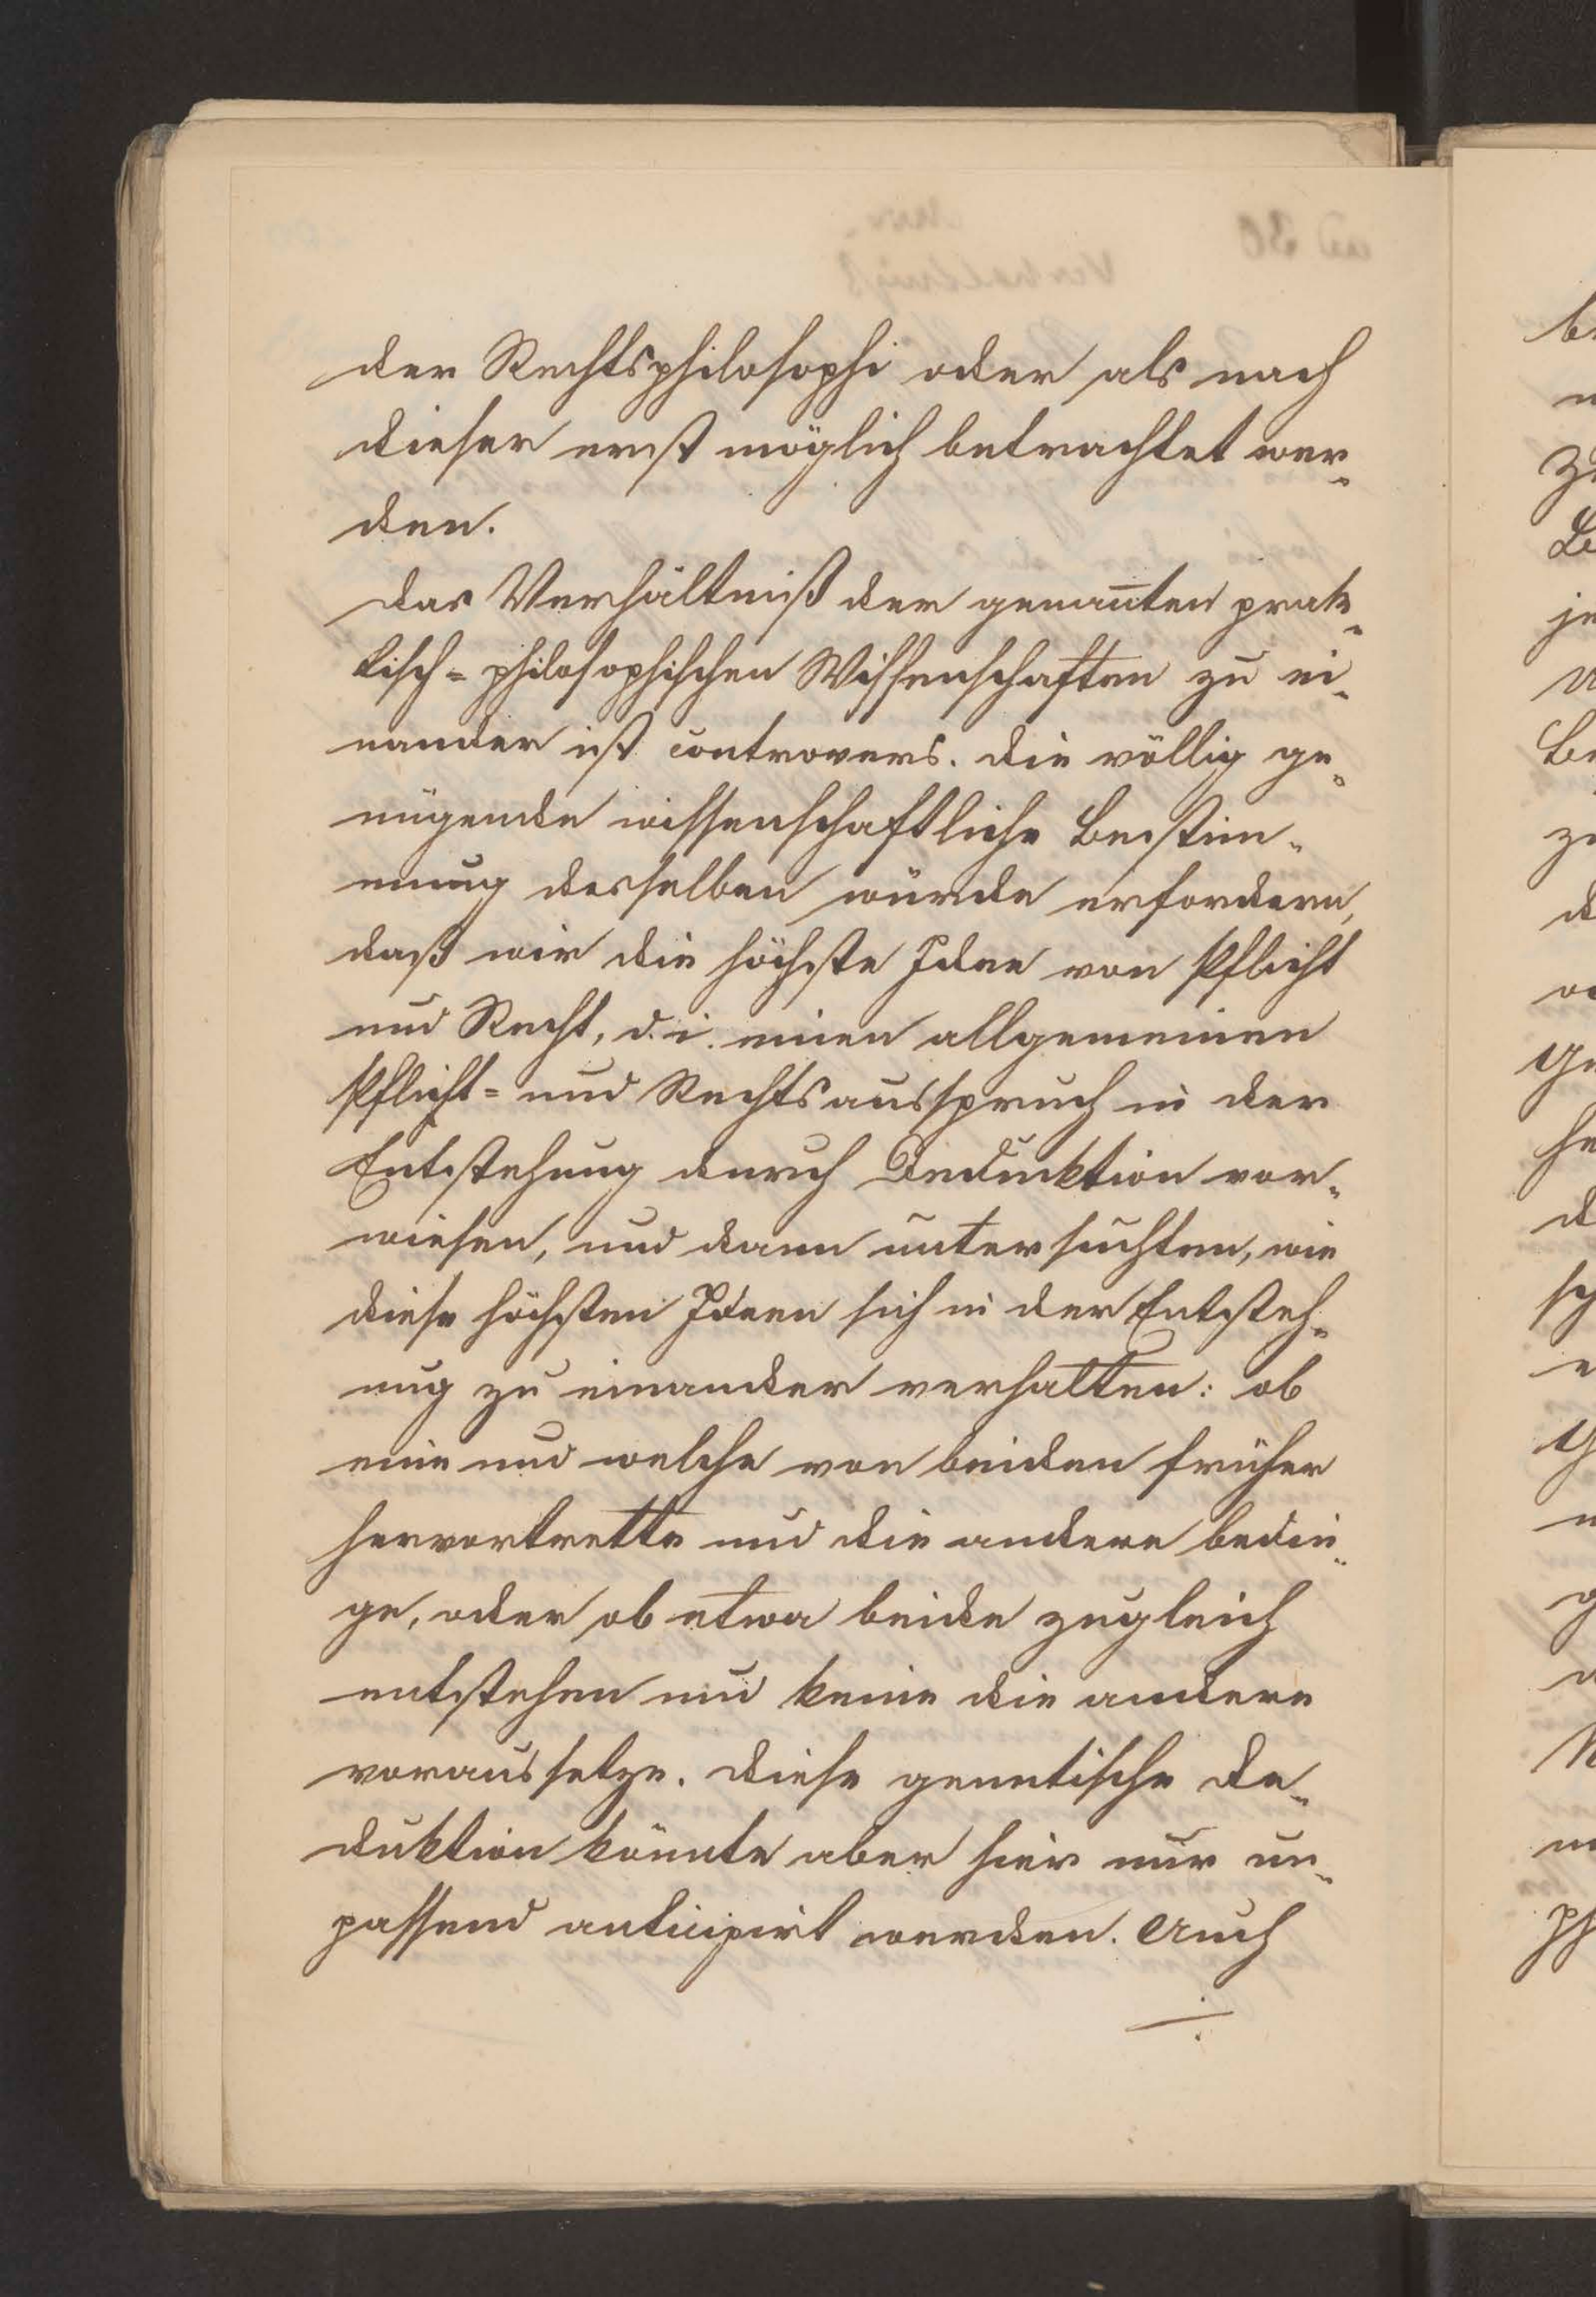 der Rechtsphilosophi oder als nach
dieser erst möglich betrachtet wer-
den.
Das Verhältniß der genan̄ten prak-
tisch=philosophischen Wissenschaften zu ei-
nander ist controvers. Die völlig ge-
nügende wissenschaftliche Bestim-
mung desselben würde erfordern,
daß wir die höchste Idee von Pflicht
und Recht, d. i. einen allgemeinen
Pflicht= und Rechtsausspruch in der
Entstehung durch Deduktion vor-
wiesen, und dann untersuchten, wie
diese höchsten Ideen sich in der Entsteh-
ung zu einander verhalten: ob
eine und welche von beiden früher
hervortrette und die andere bedin-
ge, oder ob etwa beide zugleich
entstehen und keine die andere
voraussetze. Diese genetische De-
duktion könnte aber hier nur un-
passend anticipirt werden. Auch